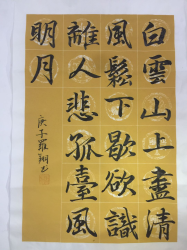 白雲山上盡清
風鬆下歇欲識
離人悲孤臺風
明月
庚子羅书